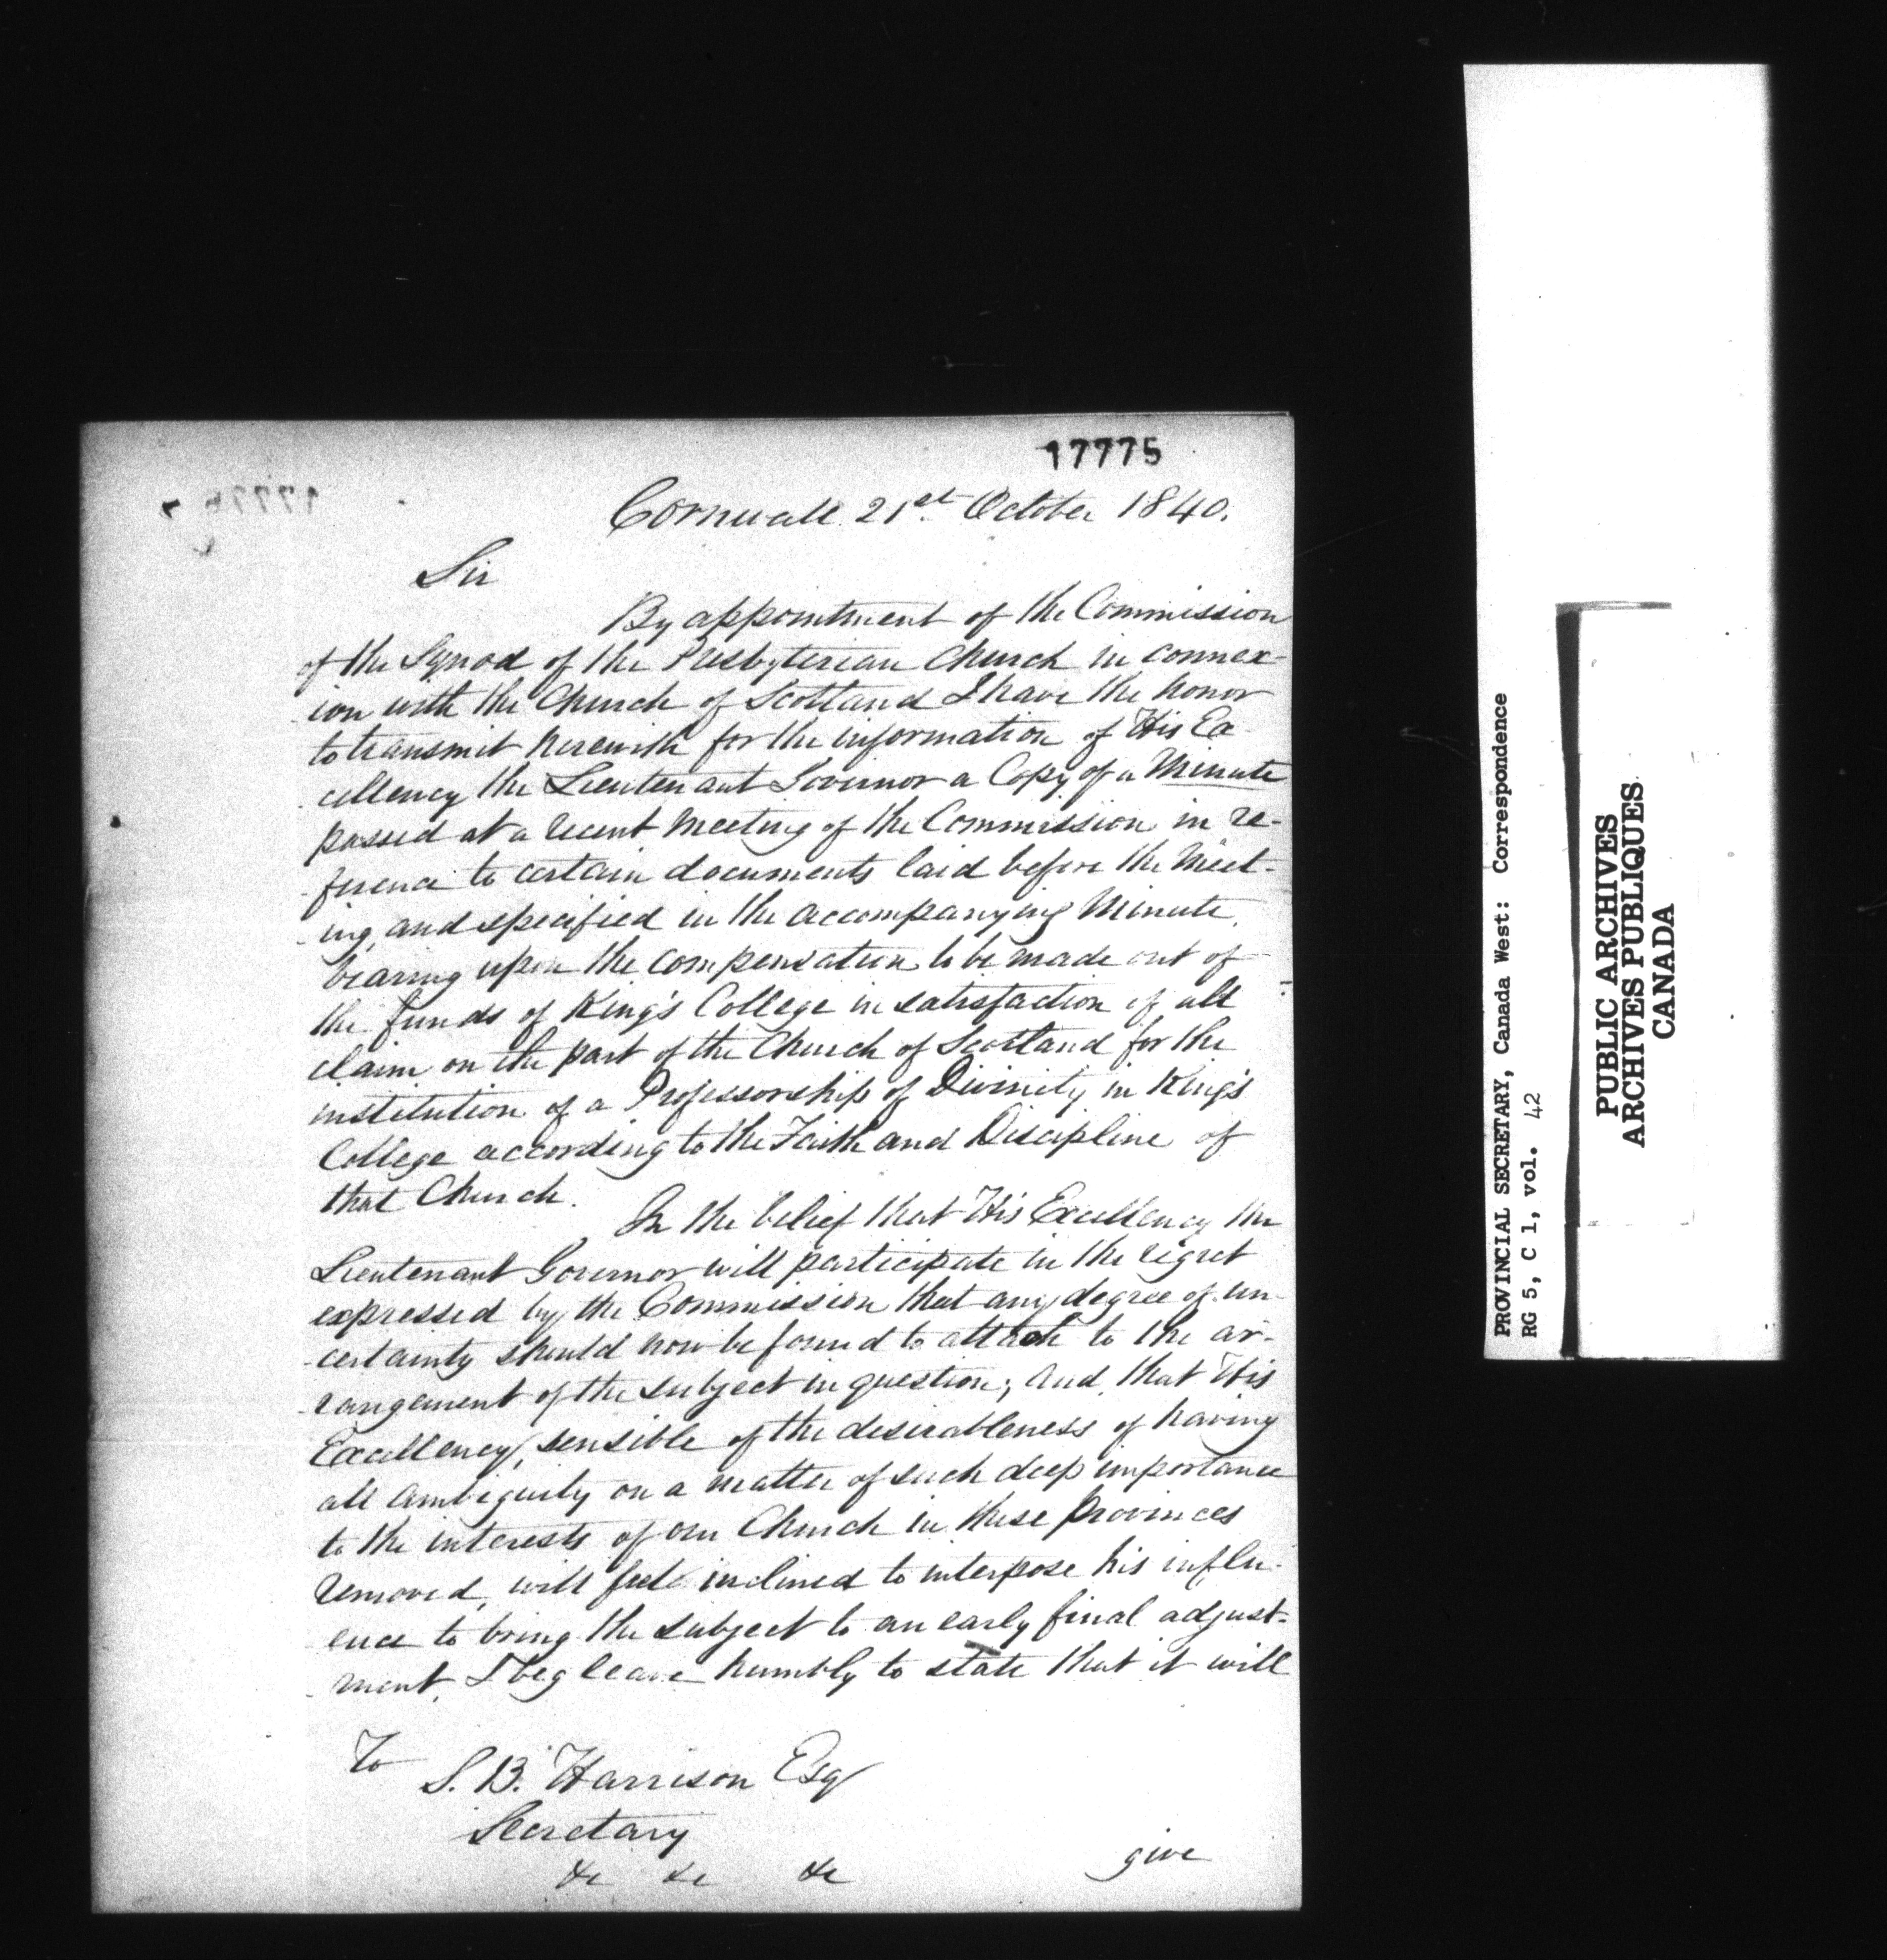 17775
Cornwall 21st October 1840.
Sir
By appointment of the Commission
of the Synod of the Presbyterian Church in connex-
ion with the Church of Scotland I have the honor
to transmit herewith for the information of His Ex-
cellency the Lieutenant Governor a Copy of a Minute
passed at a recent Meeting of the Commission in re-
ference to certain documents laid before the Meet-
ing, and specified in the accompanying Minute,
bearing upon the compensation to be made out of
the funds of King's College in satisfaction of all
claim on the part of the Church of Scotland for the
institution of a Professorship of Divinity in King's
College according to the Faith and Discipline of
that Church.
In the belief that His Excellency the
Lieutenant Governor will participate in the regret
expressed by the Commission that any degree of un-
certainty should now be found to attach to the ar-
rangement of the subject in question; and, that His
Excellency, sensible of the desirableness of having
all ambiguity on a matter of such deep importance
to the interests of our Church in these Provinces
removed, will feel inclined to interpose his influ-
ence to bring the subject to an early final adjust-
ment, I beg leave humbly to state that it will
To
S. B. Harrison Esq
Secretary
&c &c &c
give
PROVINCIAL SECRETARY, Canada West: Correspondence
RG 5, C 1, vol. 42
PUBLIC ARCHIVES
ARCHIVES PUBLIQUES
CANADA